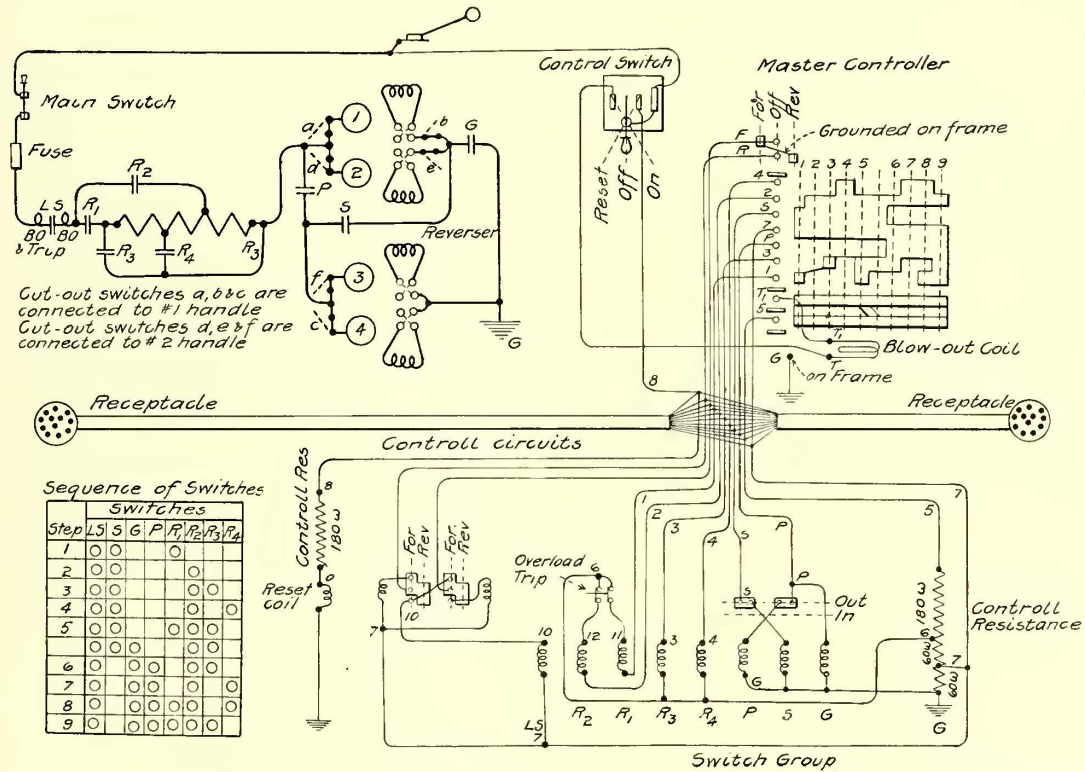 Main Switch
Fuse
LS
BO BO
& Trip
R1
R2
R3
R4
R3
a
d
1
2
P
b
e
G
S
Reverser
f
c
3
4
G
Cut-out switches a, b & c are
connected to #1 handle
Cut-out switches d, e & f are
connected to # 2 handle
Control Switch
Reset
Off
On
Master Controller
For
Off
Rev
Grounded on frame
F
R
4
2
S
7
P
3
1
T1
5
1 2 3 4 5 6 7 8 9
T1
Blow-out Coil
T
G
on Frame
8
Receptacle
Receptacle
Controll circuits
Sequence of Switches
Switches
Step LS S G P R1 R2 R3 R4
1 O O O
2 O O O
3 O O O O
4 O O O O
5 O O O O O
O O O O O
6 O O O O O
7 O O O O O
8 O O O O O O
9 O O O O O
Controll Res
8
180 ω
0
Reset
coil
For
Rev
For
Rev
10
7
1
2
3
4
S
P
7
5
Overload
Trip
6
12
11
10
3
4
S
P
Out
In
G
180 ω
6
60ω
7
60ω
G
Controll
Resistance
LS
7
R2 R1 R3 R4 P S G
Switch Group